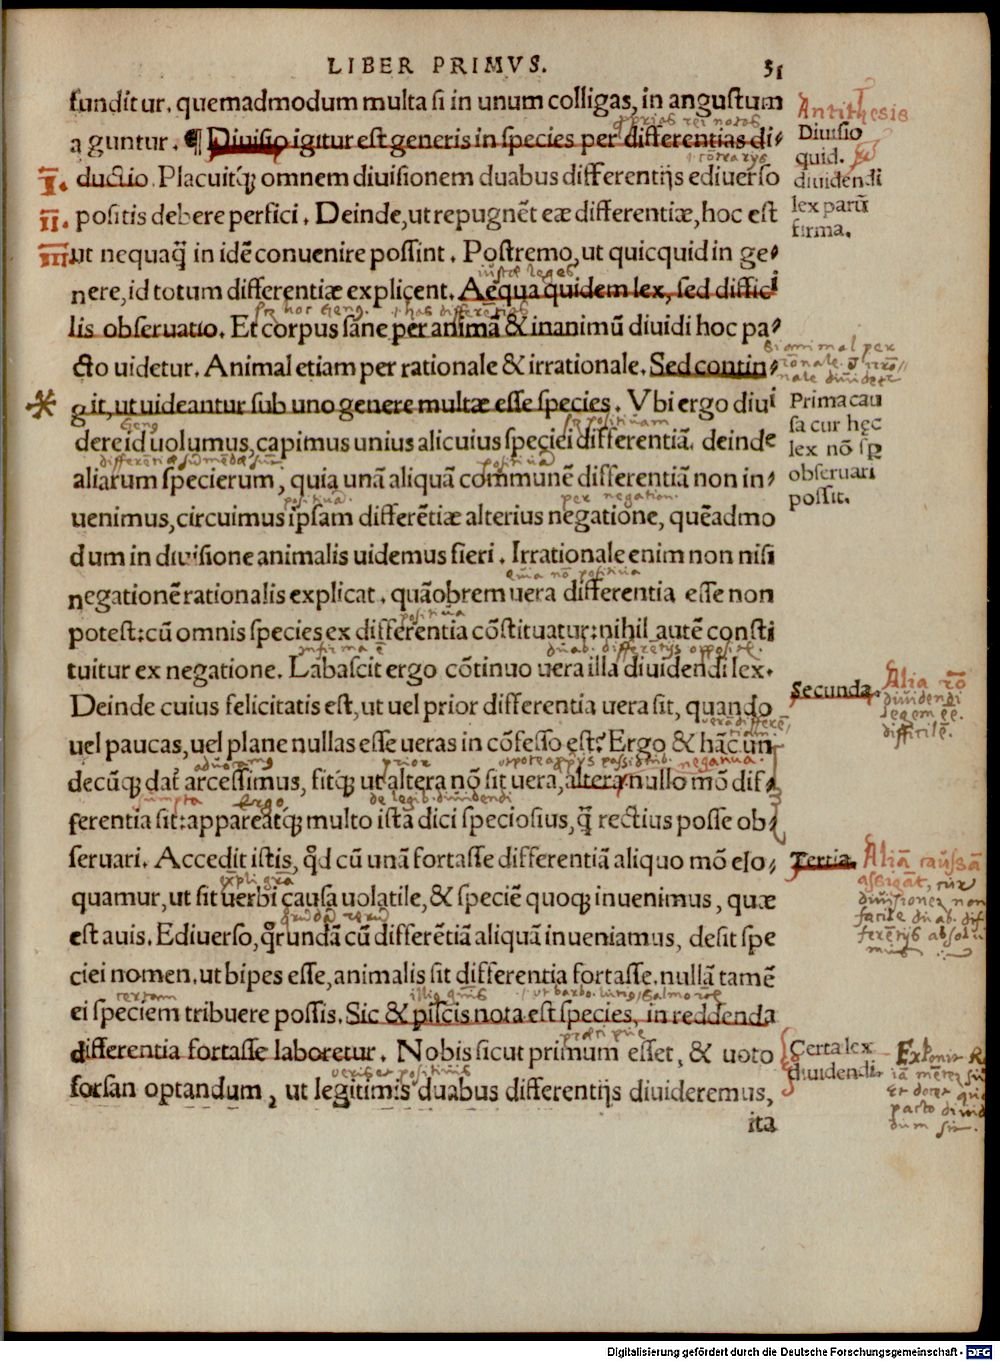 LIBER PRIMVS. 31
funditur. quemadmodum multa si in unum colligas, in angustum
a guntur. ¶ Diuisio igitur est generis in species per differentias di⸗
ductio. Placuitq́ omnem diuisionem duabus differentijs ediuerso
positis debere perfici. Deinde, ut repugnēt eæ differentiæ, hoc est
ut nequaq̃ in idē conuenire possint. Postremo, ut quicquid in ge⸗
nere, id totum differentiæ explicent. Aequa quidem lex, sed diffici
lis obseruatio. Et corpus sane per animā & inanimū diuidi hoc pa⸗
cto uidetur. Animal etiam per rationale & irrationale. Sed contin⸗
git, ut uideantur sub uno genere multæ esse species. Vbi ergo diui
dere id uolumus, capimus unius alicuius speciei differentiā. deinde
aliarum specierum, quia unā aliquā communē differentiā non in⸗
uenimus, circuimus ipsam differētiæ alterius negatione, quēadmo
dum in diuisione animalis uidemus fieri. Irrationale enim non nisi
negationē rationalis explicat. quāobrem uera differentia esse non
potest: cū omnis species ex differentia cōstituatur: nihil autē consti
tuitur ex negatione. Labascit ergo cōtinuo uera illa diuidendi lex.
Deinde cuius felicitatis est, ut uel prior differentia uera sit, quando
uel paucas, uel plane nullas esse ueras in cōfesso est? Ergo & hāc un
decūq́ dat arcessimus, fitq́ ut altera nō sit uera, altera nullo mō dif⸗
ferentia sit: appareatq́ multo ista dici speciosius, q̃ rectius posse ob⸗
seruari. Accedit istis, qđ cū unā fortasse differentiā aliquo mō elo⸗
quamur, ut sit uerbi causa uolatile, & speciē quoq́ inuenimus, quæ
est auis. Ediuerso, q̃rundā cū differētiā aliquā inueniamus, desit spe
ciei nomen, ut bipes esse, animalis sit differentia fortasse. nullā tamē
ei speciem tribuere possis. Sic & piscis nota est species, in reddenda
differentia fortasse laboretur. Nobis sicut primum esset, & uoto
forsan optandum, ut legitimis duabus differentijs diuideremus,
ita
Antithesis
Diuisio
quid.
diuidendi
lex parū
firma.
I.
II.
III.
Prima cau
sa cur hęc
lex nō sp̄
obseruari
possit.
Secunda.
Alia rō
diuidendi
legem eē.
difficilē.
Tertia.
Aliā caussā
assignāt, cur
diuisiones non
facile duab. dif
ferētijs absolui
mus
Certa lex
diuidendi.